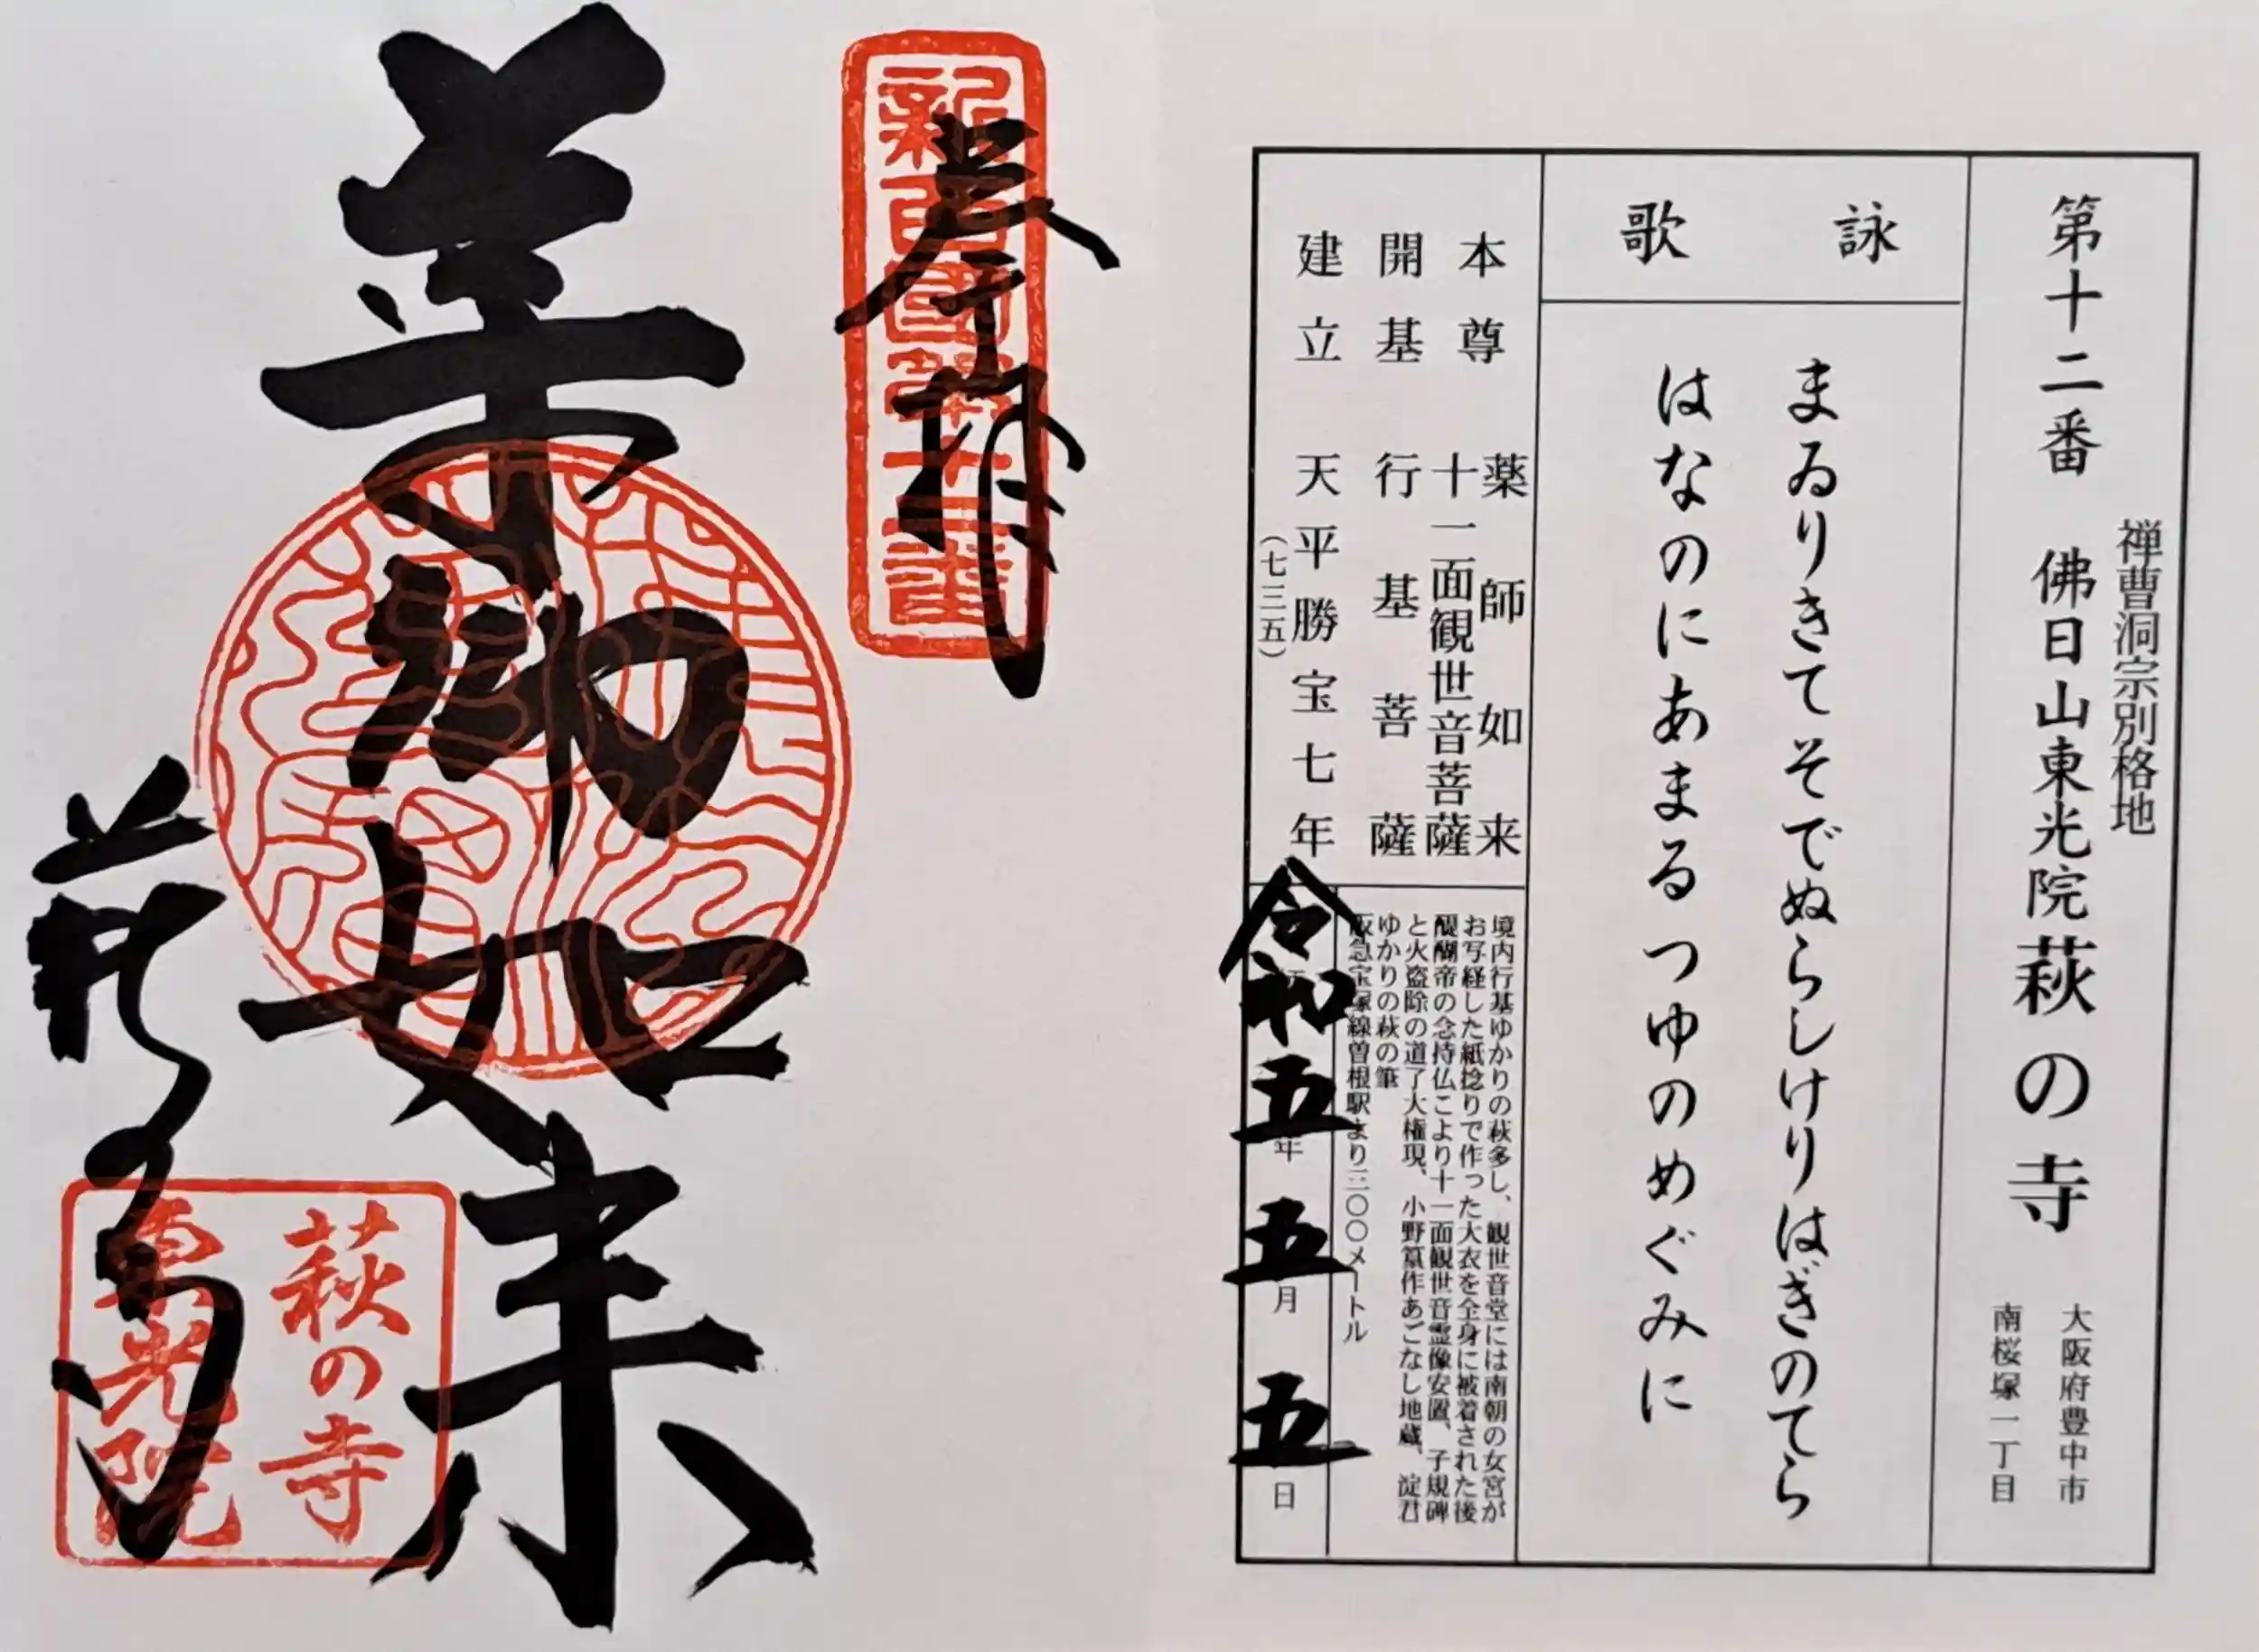 第十二番 佛日山東光院萩の寺
禅曹洞宗別格地
大阪府豊中市
南桜塚一丁目
詠歌
まゐりきてそでぬらしけりはぎのてら
はなのにあまるつゆのめぐみに
本尊 薬師如来
十一面観世音菩薩
開基 行基菩薩
建立 天平勝宝七年
(七三五)
境内行基ゆかりの萩多し、観世音堂には南朝の女宮が
お写経した紙捻りで作った大衣を全身に被着された後
醍醐帝の念持仏こより十一面観世音霊像安置、子規碑
と火盗除の道了大権現、小野篁作あごなし地蔵、淀君
ゆかりの萩の筆
阪急宝塚線曽根駅より三〇〇メートル
令和五年五月五日
奉拝
新西國第十二番
薬師如来
萩の寺
萩の寺
東光院